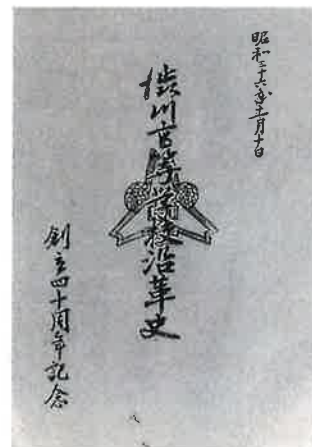 昭和三十六年十一月十日
渋川高等学校沿革史
創立四十周年記念